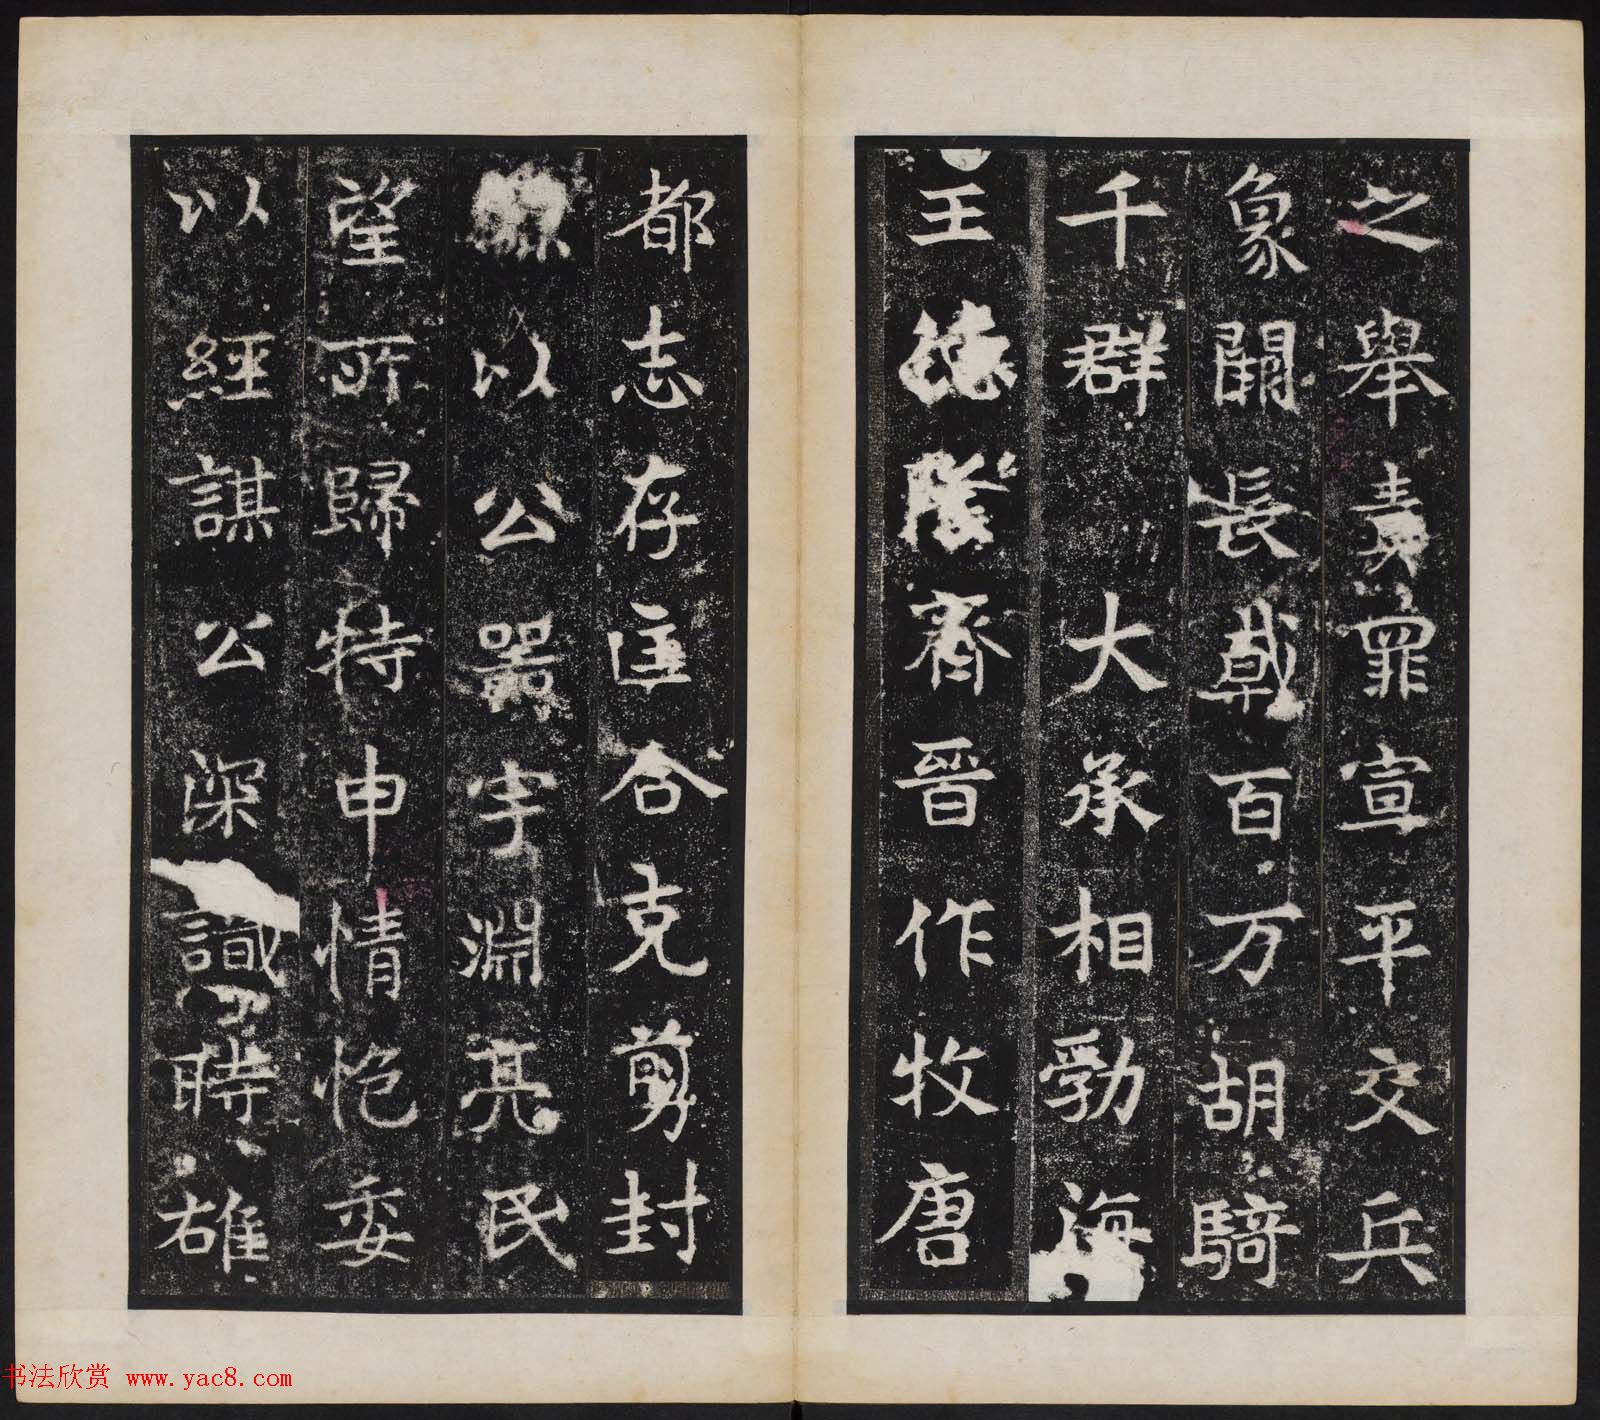 之舉責罪宣平交兵
象闕長戟百万胡騎
千群大承相勃海
王德隆齊晉作牧唐
都志存匡合克剪封
以公器宇淵亮民
望所歸特申情抱委
以經謀公深識時雄
书法欣赏 www.yac8.com